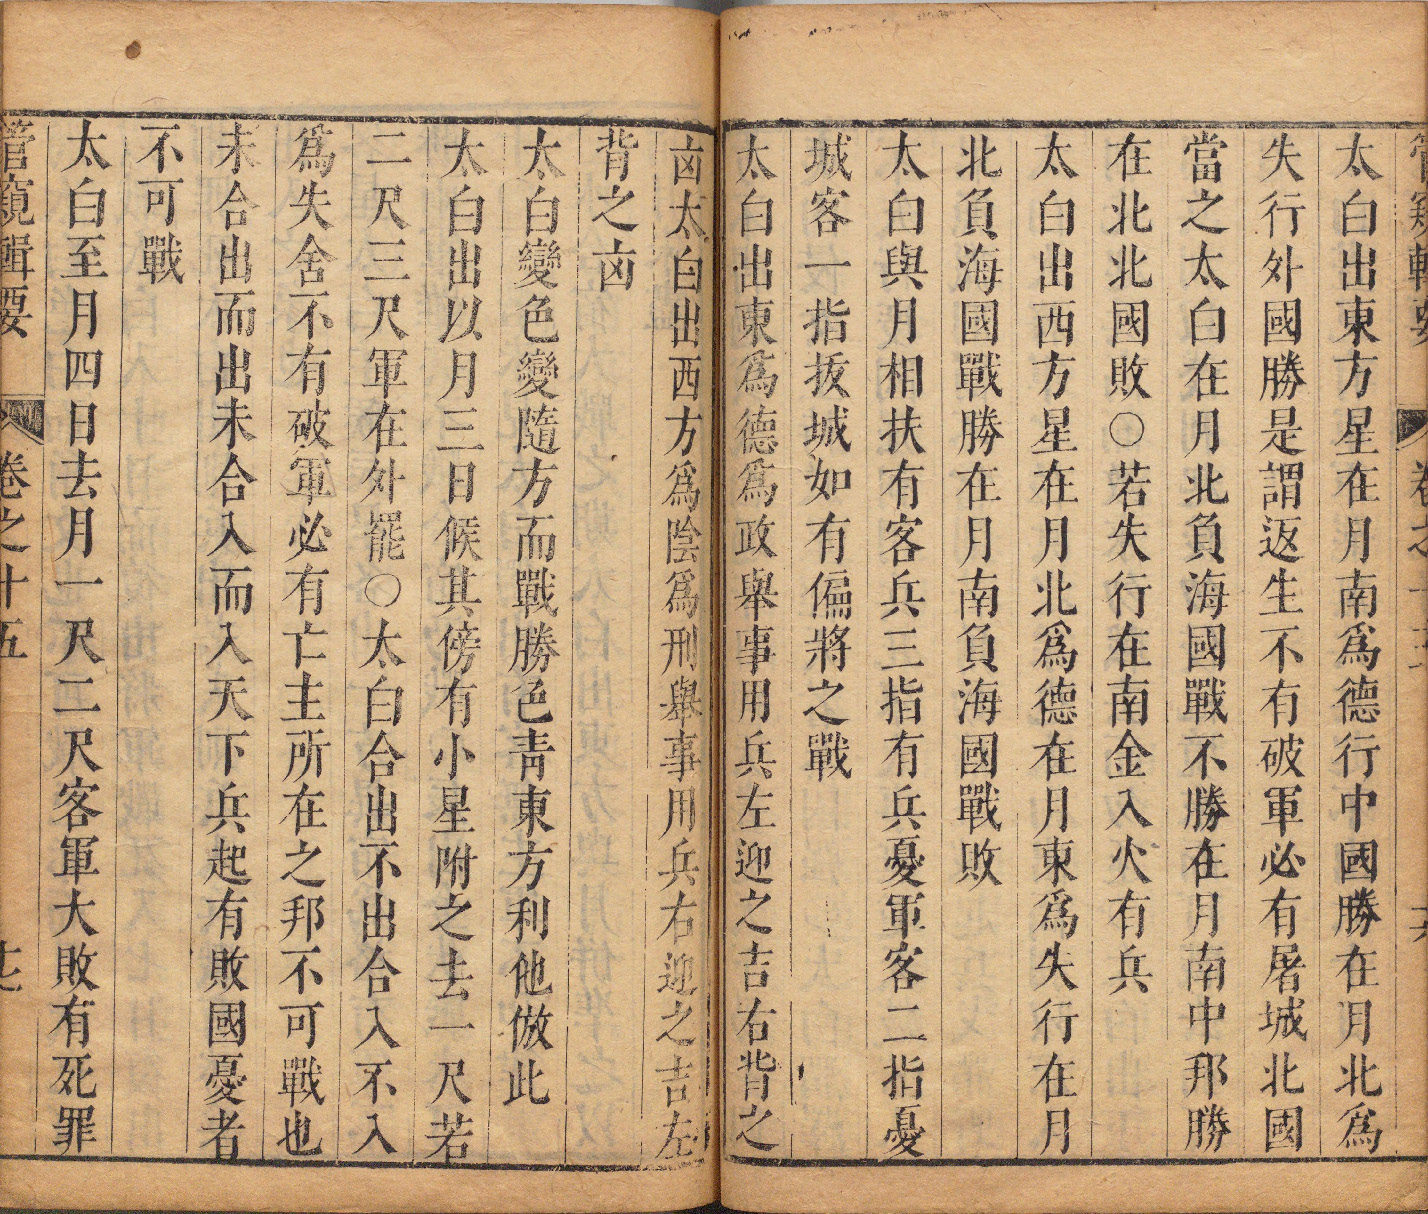 管窺輯要 卷之十五 十六
太白出東方星在月南爲德行中國勝在月北爲
失行外國勝是謂返生不有破軍必有屠城北國
當之太白在月北負海國戰不勝在月南中邦勝
在北北國敗○若失行在南金入火有兵
太白出西方星在月北爲德在月東爲失行在月
北負海國戰勝在月南負海國戰敗
太白與月相扶有客兵三指有兵憂軍客二指憂
城客一指拔城如有偏將之戰
太白出東爲德爲政舉事用兵左迎之吉右背之
凶太白出西方爲陰爲刑舉事用兵右迎之吉左
背之凶
太白變色變隨方而戰勝色靑東方利他倣此
太白出以月三日候其傍有小星附之去一尺若
二尺三尺軍在外罷○太白合出不出合入不入
爲失舍不有破軍必有亡主所在之邦不可戰也
未合出而出未合入而入天下兵起有敗國憂者
不可戰
太白至月四日去月一尺二尺客軍大敗有死罪
管窺輯要 卷之十五 十七